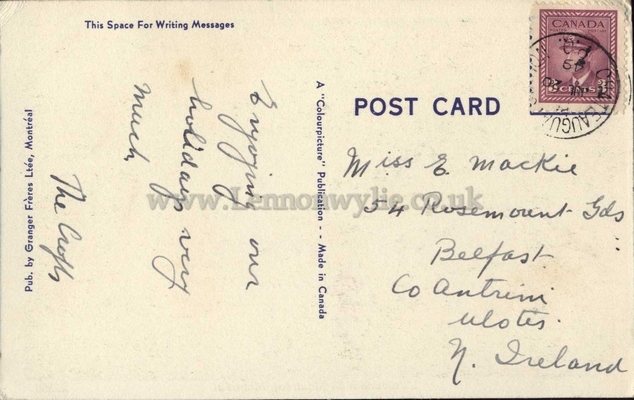 This Space For Writing Messages
Enjoying our
holidays very
much
The Crofts
Pub. by Granger Frères Ltée, Montréal
A "Colourpicture" Publication -- Made in Canada
POST CARD
CANADA
3 CENTS 3
Miss E Mackie
54 Rosemount Gds
Belfast
Co Antrim
N. Ireland
www.Lennonwylie.co.uk